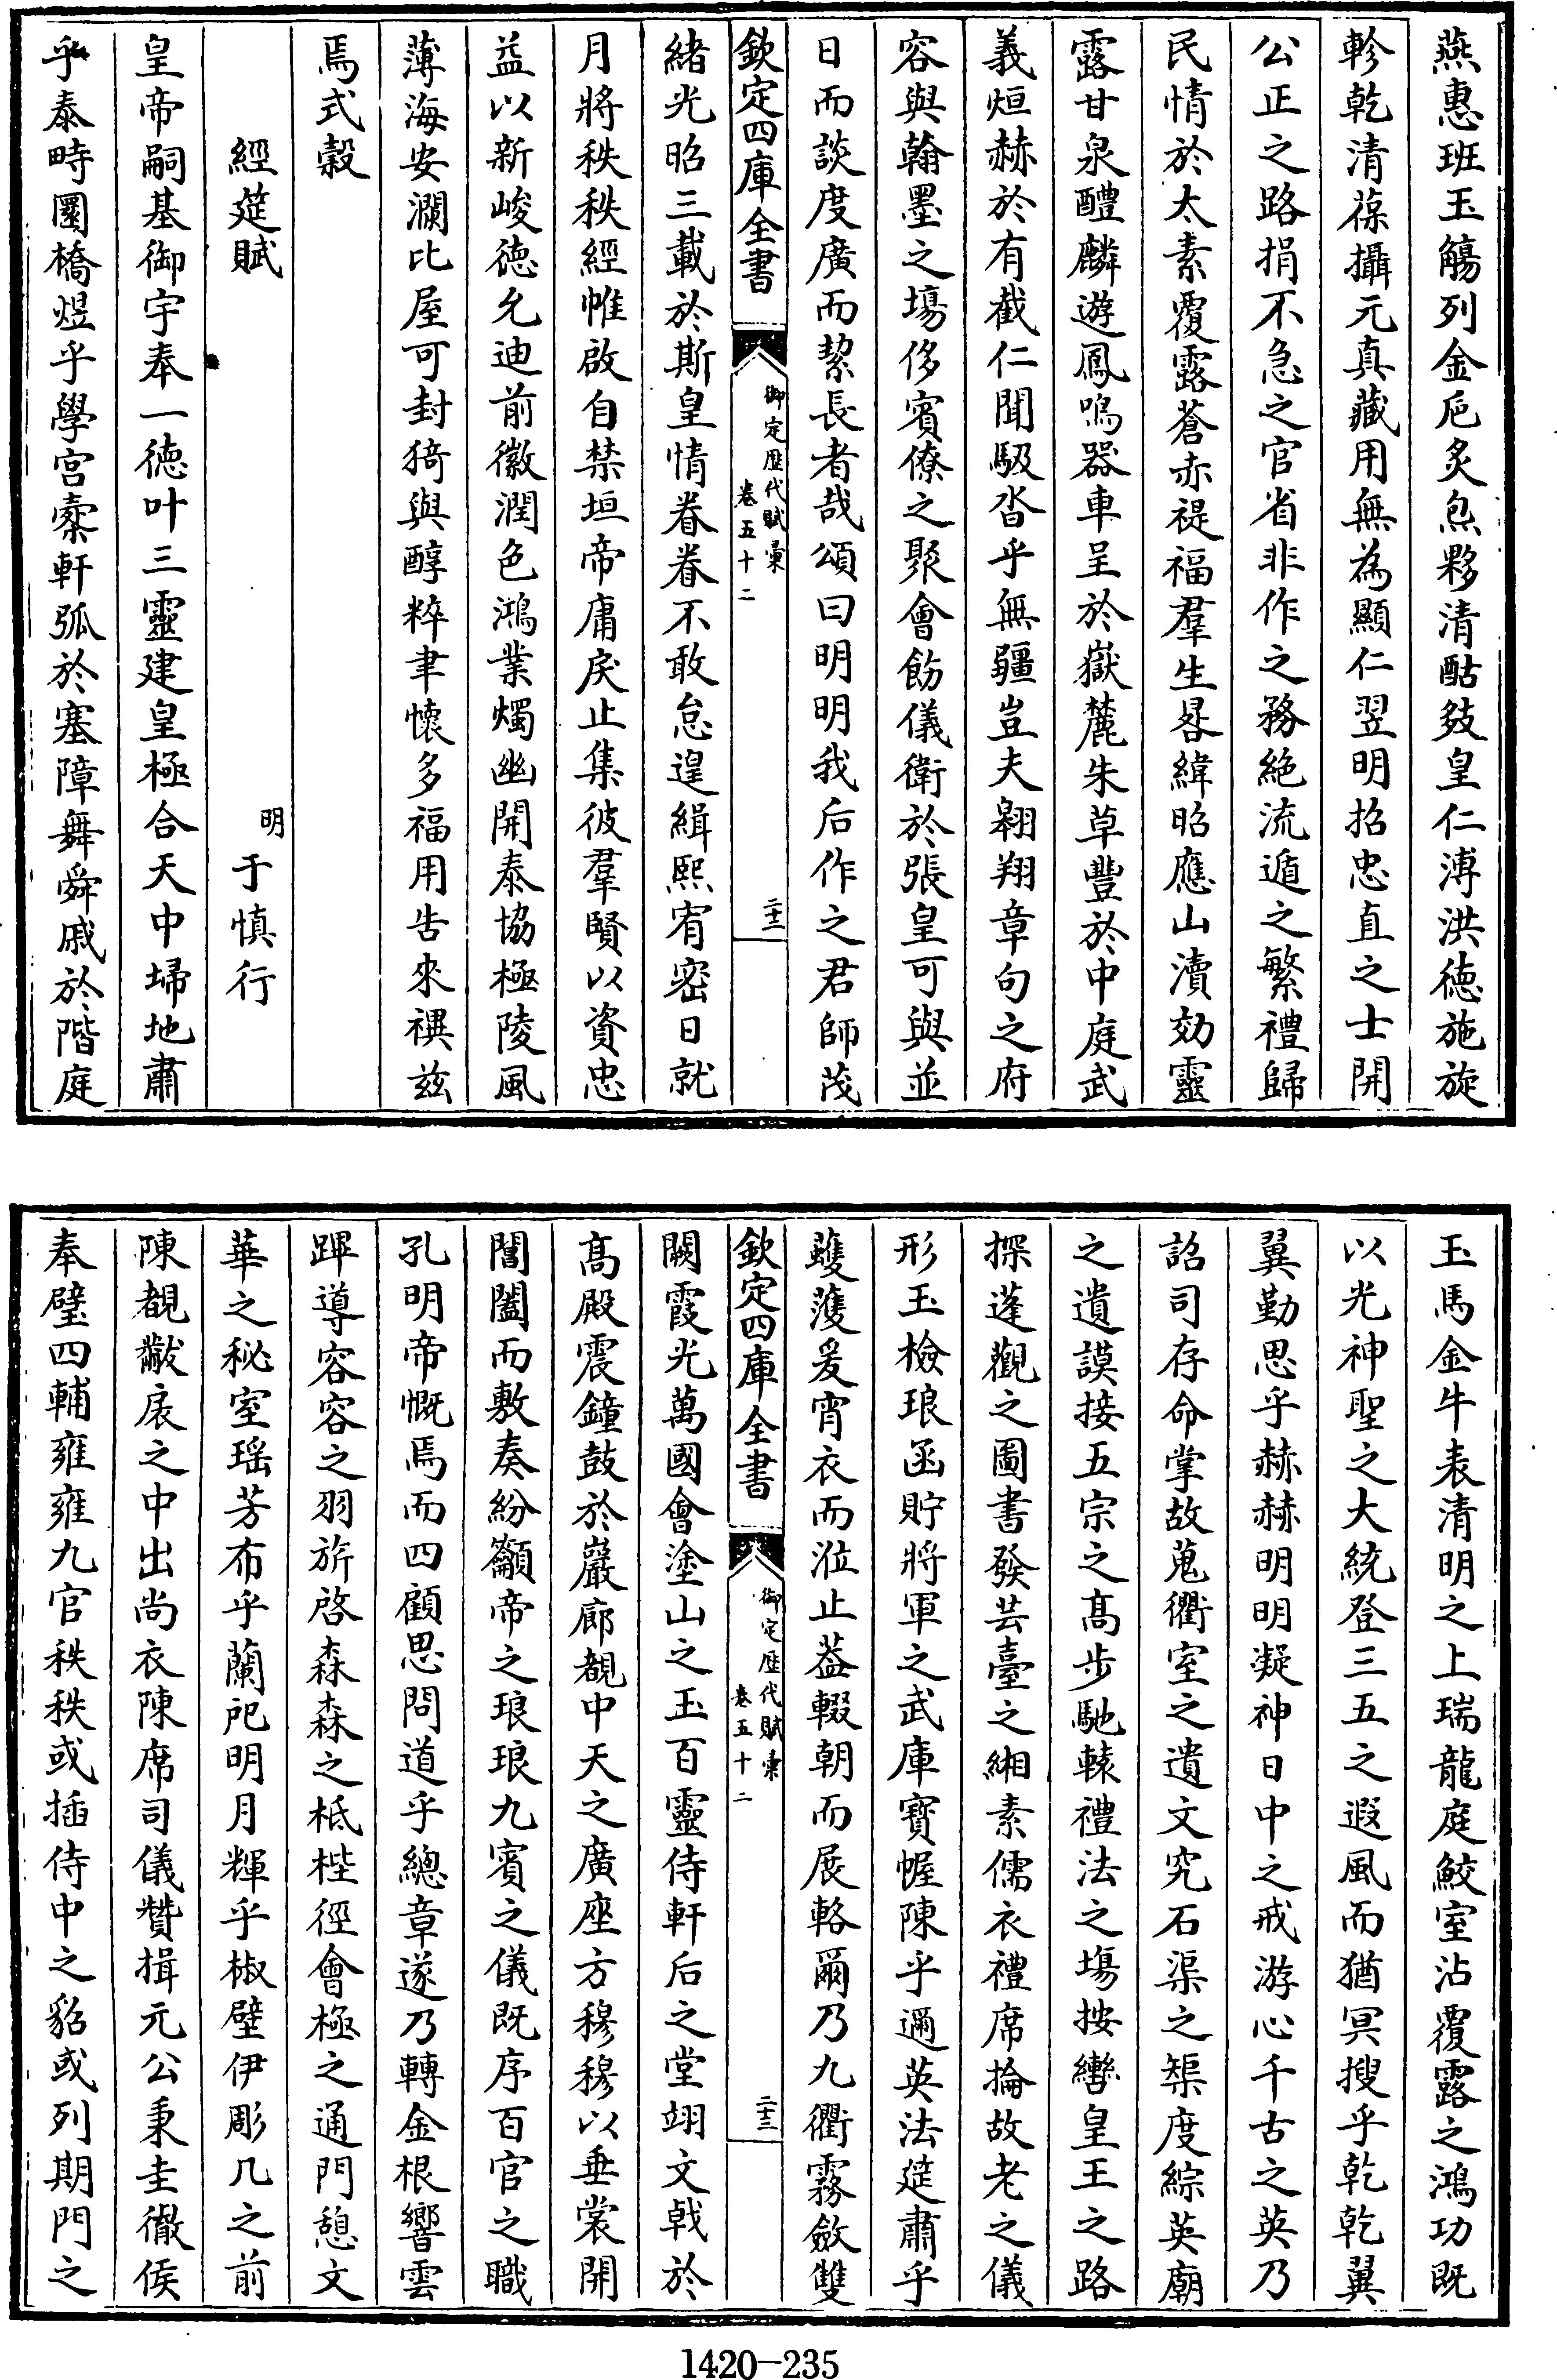 燕惠班玉觴列金巵炙炰夥清酤㩻皇仁溥洪徳施旋
軫乾清葆攝元真藏用無為顯仁翌明招忠直之士開
公正之路捐不急之官省非作之務絶流遁之繁禮歸
民情於太素覆露蒼赤禔福羣生晷緯昭應山瀆効靈
露甘泉醴麟遊鳳鳴器車呈於嶽麓朱草豐於中庭武
義烜赫於有截仁聞馺沓乎無疆豈夫翱翔章句之府
容與翰墨之場侈賓僚之聚會飭儀衛於張皇可與並
日而談度廣而絜長者哉頌曰明明我后作之君師茂
欽定四庫全書
御定歴代賦彙
卷五十二
二十二
緒光昭三載於斯皇情眷眷不敢怠遑緝熙宥密日就
月將秩秩經帷啟自禁垣帝庸戾止集彼羣賢以資忠
益以新峻徳允迪前徽潤色鴻業燭幽開泰協極陵風
薄海安瀾比屋可封猗與醇粹聿懷多福用告來禩兹
焉式榖
經筵賦
明于慎行
皇帝嗣基御宇奉一徳叶三靈建皇極合天中埽地肅
乎泰畤圜橋煜乎學宫櫜軒弧於塞障舞舜戚於階庭
玉馬金牛表清明之上瑞龍庭鮫室沾覆露之鴻功既
以光神聖之大統登三五之遐風而猶冥搜乎乾乾翼
翼勤思乎赫赫明明凝神日中之戒游心千古之英乃
詔司存命掌故蒐衢室之遺文究石渠之榘度綜英廟
之遺謨接五宗之髙步馳轅禮法之場按轡皇王之路
探蓬觀之圖書發芸臺之緗素儒衣禮席掄故老之儀
形玉檢琅函貯將軍之武庫寳幄陳乎邇英法筵肅乎
䕶䕶爰宵衣而涖止葢輟朝而展輅爾乃九衢霧斂雙
欽定四庫全書
御定歴代賦彙
卷五十二
二十三
闕霞光萬國會塗山之玉百靈侍軒后之堂翊文戟於
髙殿震鐘鼓於巖廊覩中天之廣座方穆穆以垂裳開
閶闔而敷奏紛籲帝之琅琅九賓之儀既序百官之職
孔明帝慨焉而四顧思問道乎總章遂乃轉金根響雲
蹕導容容之羽旂啓森森之柢梐徑會極之通門憩文
華之秘室瑶芳布乎蘭戺明月輝乎椒壁伊彫几之前
陳覩黻扆之中出尚衣陳席司儀贊揖元公秉圭徹侯
奉璧四輔雍雍九官秩秩或插侍中之貂或列期門之
1420-235